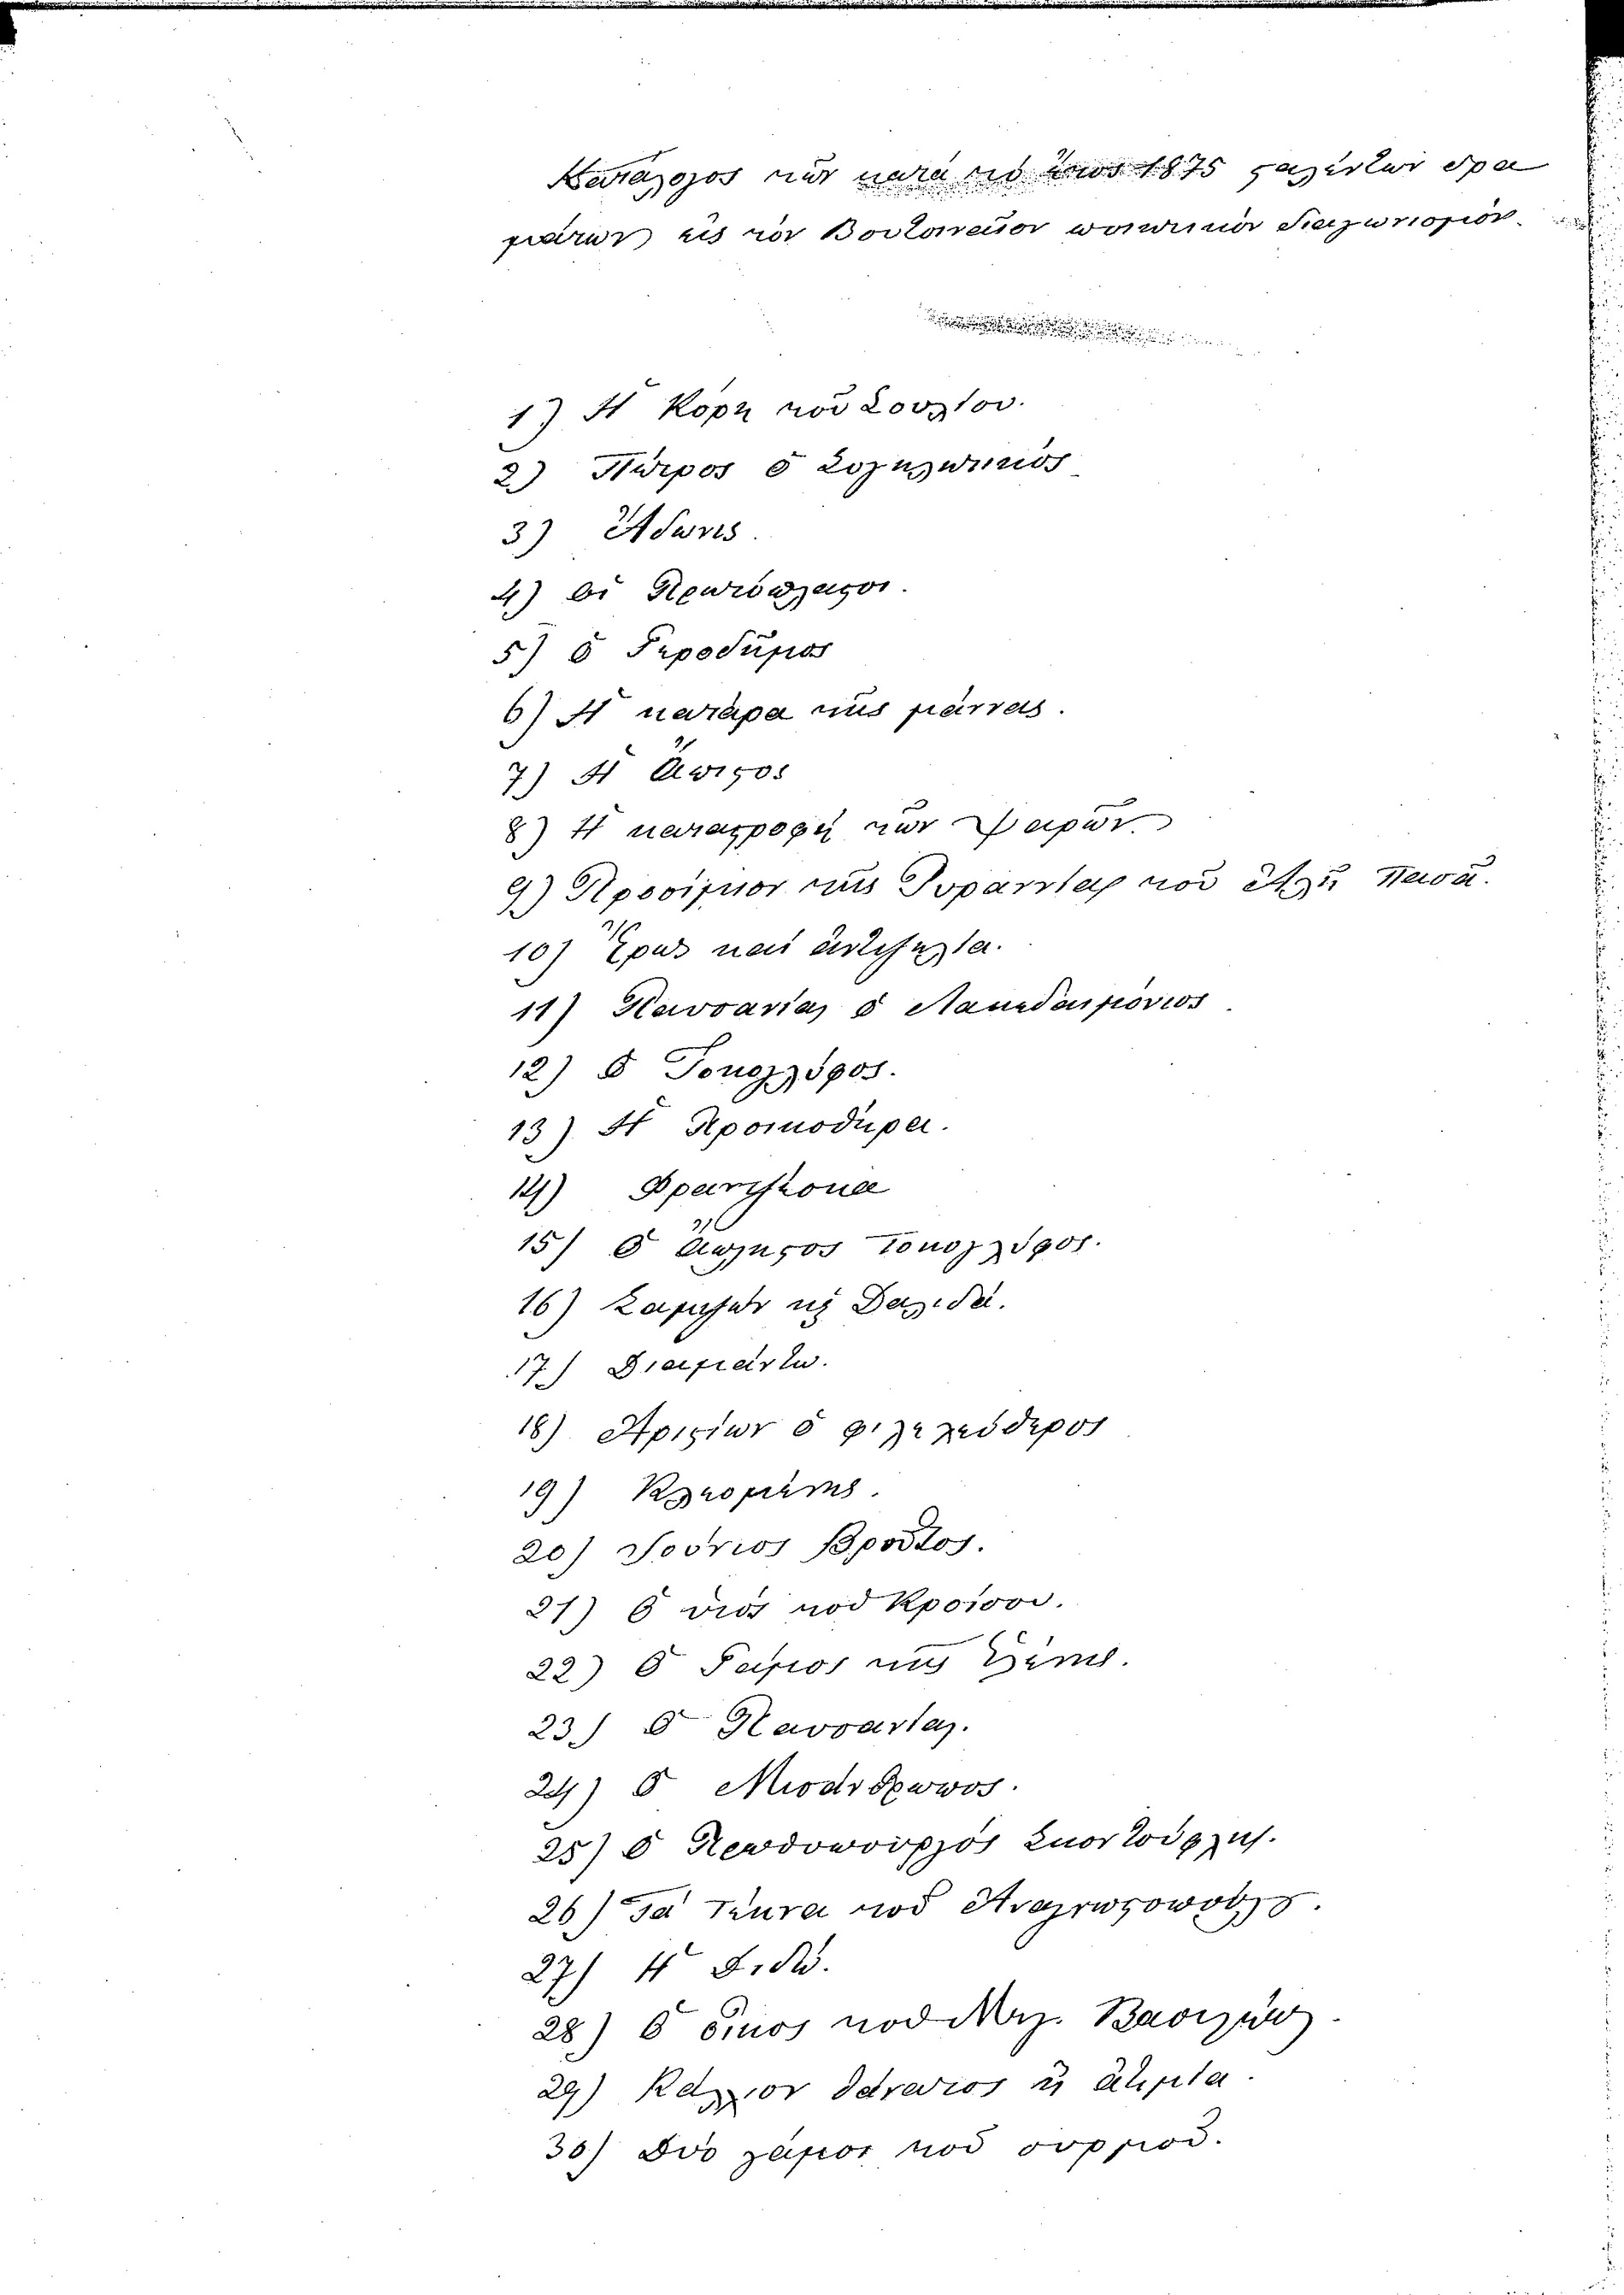 Κατάλογος τῶν κατὰ τὸ ἔτος 1875 σταλέντων δρα
μάτων εἰς τὸν Βουτσιναῖον ποιητικὸν διαγωνισμόν.
1) Ἡ Κόρη τοῦ Σουλίου.
2) Πύῤῥος ὁ
3) Ἄδωνις.
4) Οἱ Πρωτόπλαστοι.
5) ὁ Ἱερόθυμος
6) Ἡ κατάρα τῆς μάννας.
7) Ἡ Ἄπιστος
8) Ἡ καταστροφὴ τῶν Ψαρῶν.
9) Προοίμιον τῆς Τυραννίας τοῦ Ἀλῆ Πασᾶ.
10) Ἔρως καὶ ἀντιζηλία.
11) Παυσανίας ὁ Λακεδαιμόνιος.
12) ὁ Τοκογλύφος.
13) Ἡ Προικοθήρα.
14) Φραντζέσκα
15) ὁ ἄπληστος τοκογλύφος.
16) Σαμψὼν κ Δαλιδά.
17) Διαμάντω.
18) Ἀριστίων ὁ φιλελεύθερος
19) Κλεομένης.
20) Ἰούνιος Βροῦτος.
21) ὁ υἱὸς τοῦ Κροίσου.
22) ὁ Γάμος τῆς Ἑλένης.
23) ὁ Παυσανίας.
24) ὁ Μισάνθρωπος.
25) ὁ Πανδοσουργὸς
26) Τὰ Τέκνα τοῦ Ἀναγνωστοπούλου.
27) Ἡ
28) ὁ οἶκος τοῦ Μιχ. Βασιλείου
29) Κάλλιον θάνατος ἢ ἀτιμία.
30) Δύο γάμοι τοῦ συρμοῦ.